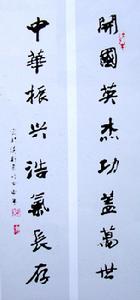 開國英杰功蓋萬世
中華振兴浩氣長存